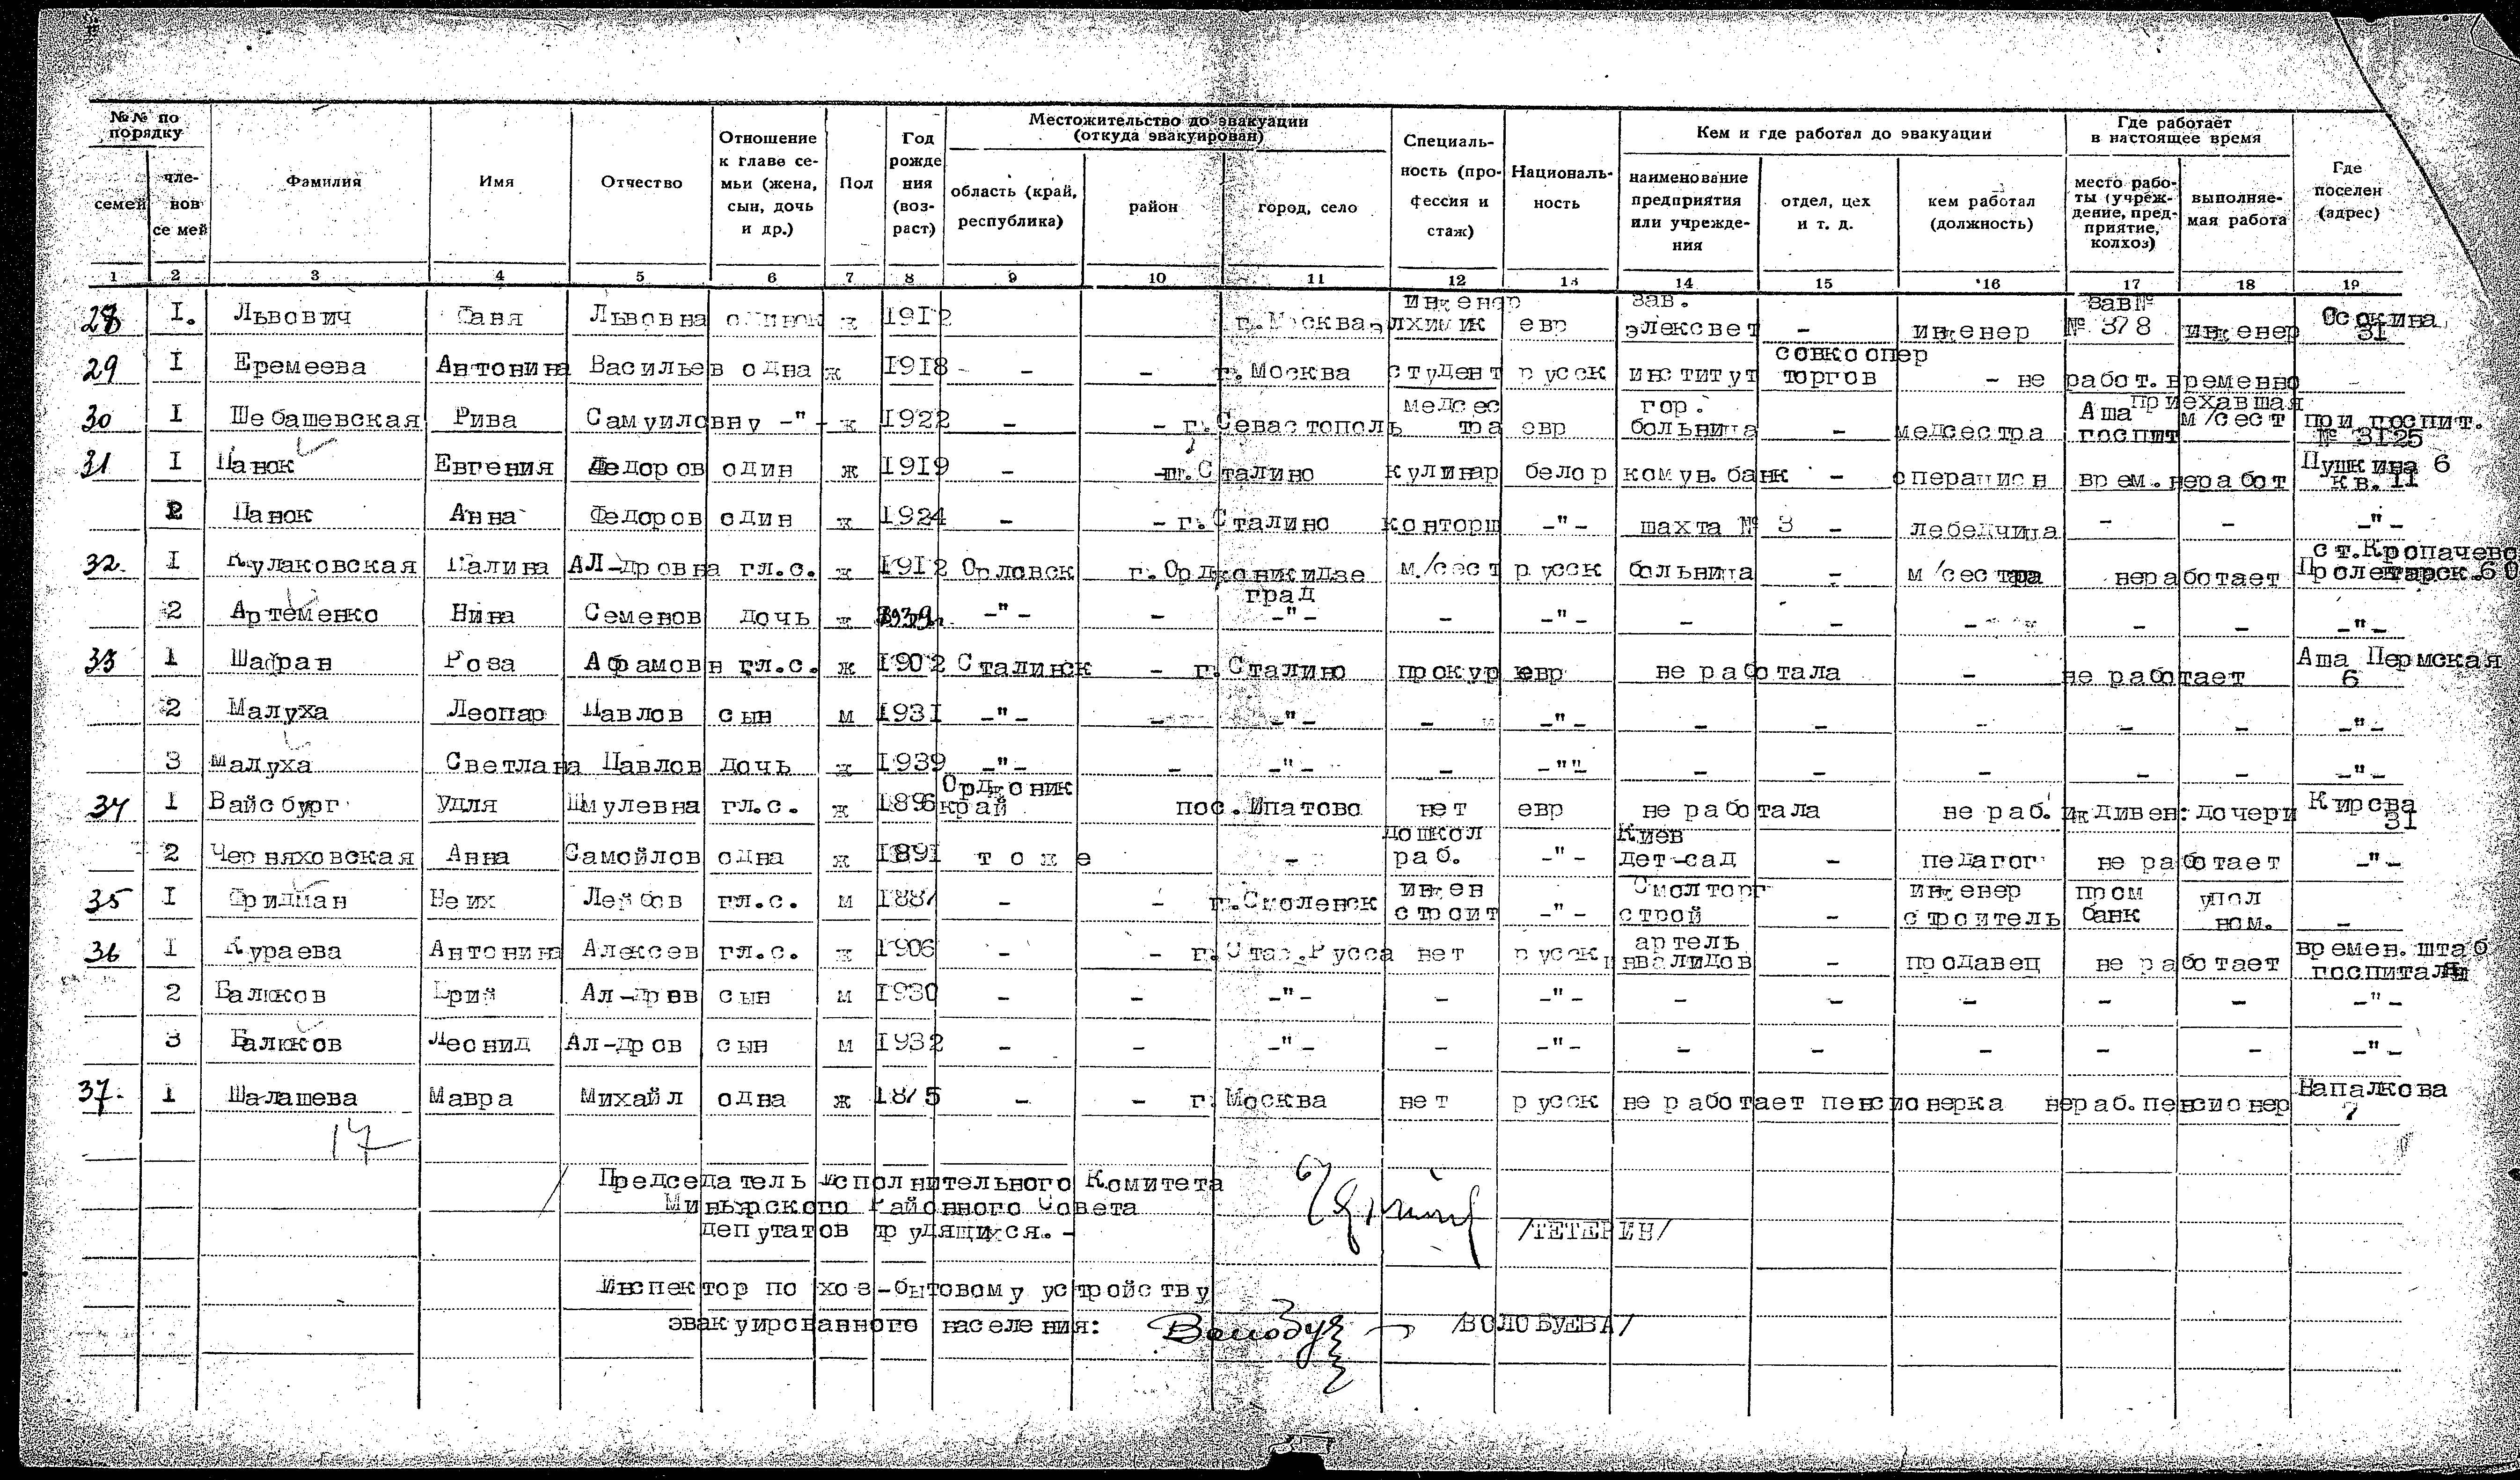 №№ по порядку
семей
членов се мей
Фамилия
Имя
Отчество
Отношение к главе семьи (жена, сын, дочь и др.)
Пол
Год рождения (возраст)
Местожительство до эвакуации (откуда эвакуирован)
область (край, республика)
район
город, село
Специальность (профессия и стаж)
Националь-ность
Кем и где работал до эвакуации
наименование предприятия или учреждения
отдел, цех и т. д.
кем работал (должность)
Где работает в настоящее время
место работы (учреждение, предприятие, колхоз)
выполняемая работа
Где поселен (адрес)
1 2 3 4 5 6 7 8 9 10 11 12 13 14 15 16 17 18 19
28 I. Львович Фаня Львовна одинок ж 1912 г.Москва элхимик инженер евр зав. элексвет - инженер зав№ № 378 инженер Осокина 31
29 I Еремеева Антонина Васильев одна ж 1918 - - г.Москва студент русск институт совкоопер торгов - не работ. временно приехавшая -
30 I Шебашевская Рива Самуиловну -"- ж 1922 - - г.Севастополь медсестра евр гор. больница - медсестра Аша госпит м/сест при госпит. № 3125
31 I Панок Евгения Федоров один ж 1919 - - г.Сталино кулинар белор комун.банк - операцион врем.неработ Пушкина 6 кв.11
2 Панок Анна Федоров один ж 1924 - - г.Сталино конторш -"- шахта № 3 - лебедчица - - -"-
32. I Кулаковская Галина Ал-дровна гл.с. ж 1912 Орловск г.Орджоникидзе град м./сест русск больница - м/сестра неработает ст.Кропачево Пролетарск.60
2 Артеменко Нина Семенов дочь ж 1939 -"- - -"- - -"- - - - - - -"-
33 1 Шафран Роза Афамовн гл.с. ж 1902 Сталинск - г.Сталино прокур евр не работала - не работает Аша Пермская 6
2 Малуха Леонар Павлов сын м 1931 -"- - -"- - -"- - - - - - -"-
3 Малуха Светлана Павлов дочь ж 1939 -"- - -"- - -""- - - - - - -"-
34 1 Вайсбург Удля Шмулевна гл.с. ж 1896 Орджоник край пос.Ипатово нет евр не работала не раб. иждивен:дочери Кирова 31
2 Черняховская Анна Самойлов одна ж 1891 тоже - дошкол раб. -"- Киев дет-сад - педагог не работает -"-
35 I Фридман Неих Лейбов гл.с. м 1887 - - г.Смоленск инжен строит -"- Смолторг строй - инженер строитель пром банк упол ном. -
36 1 Кураева Антонина Алексев гл.с. ж 1906 - - г.Стар.Русса нет русск артель инвалидов - продавец не работает времен.штаб госпиталя
2 Балюков Юрий Ал-дров сын м 1930 - - -"- - -"- - - - - - -"-
3 Балюков Леонид Ал-дров сын м 1932 - - -"- - -"- - - - - - -"-
37. 1 Шалашева Мавра Михайл одна ж 1875 - - г.Москва нет русск не работает пенсионерка нераб.пенсионер Напалкова 7
17
Председатель исполнительного Комитета
Миньярского Районного Совета
депутатов трудящихся.-
/ТЕТЕРИН/
Инспектор по хоз-бытовому устройству
эвакуированного населения: Волобуе /ВОЛОБУЕВА/